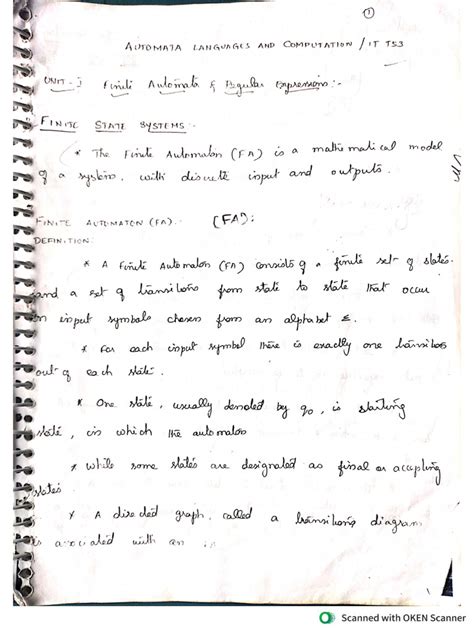 ①
AUTOMATA LANGUAGES AND COMPUTATION / IT T53
UNIT-I Finite Automata & Regular Expressions:-
FINITE STATE SYSTEMS:-
* The Finite Automaton (FA) is a mathematical model
of a system, with discrete input and outputs.
FINITE AUTOMATON (FA):. (FA):
DEFINITION:
* A Finite Automaton (FA) consists of a finite set of states
and a set of transitions from state to state that occur
on input symbols chosen from an alphabet Σ.
* For each input symbol there is exactly one transition
out of each state.
* One state, usually denoted by q0, is starting
state, in which the automaton
* While some states are designated as final or accepting
states
* A directed graph, called a transitions diagram
is associated with an
Scanned with OKEN Scanner